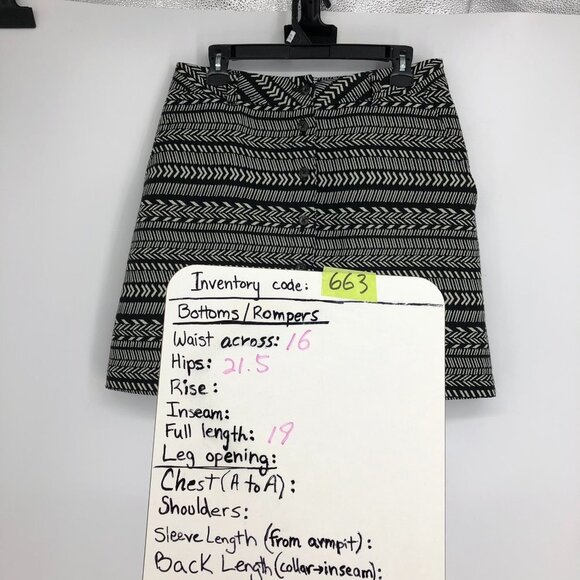 Inventory code: 663
Bottoms/Rompers
Waist across: 16
Hips: 21.5
Rise:
Inseam:
Full length: 19
Leg opening:
Chest (A to A):
Shoulders:
Sleeve Length (from armpit):
Back Length (collar→inseam):